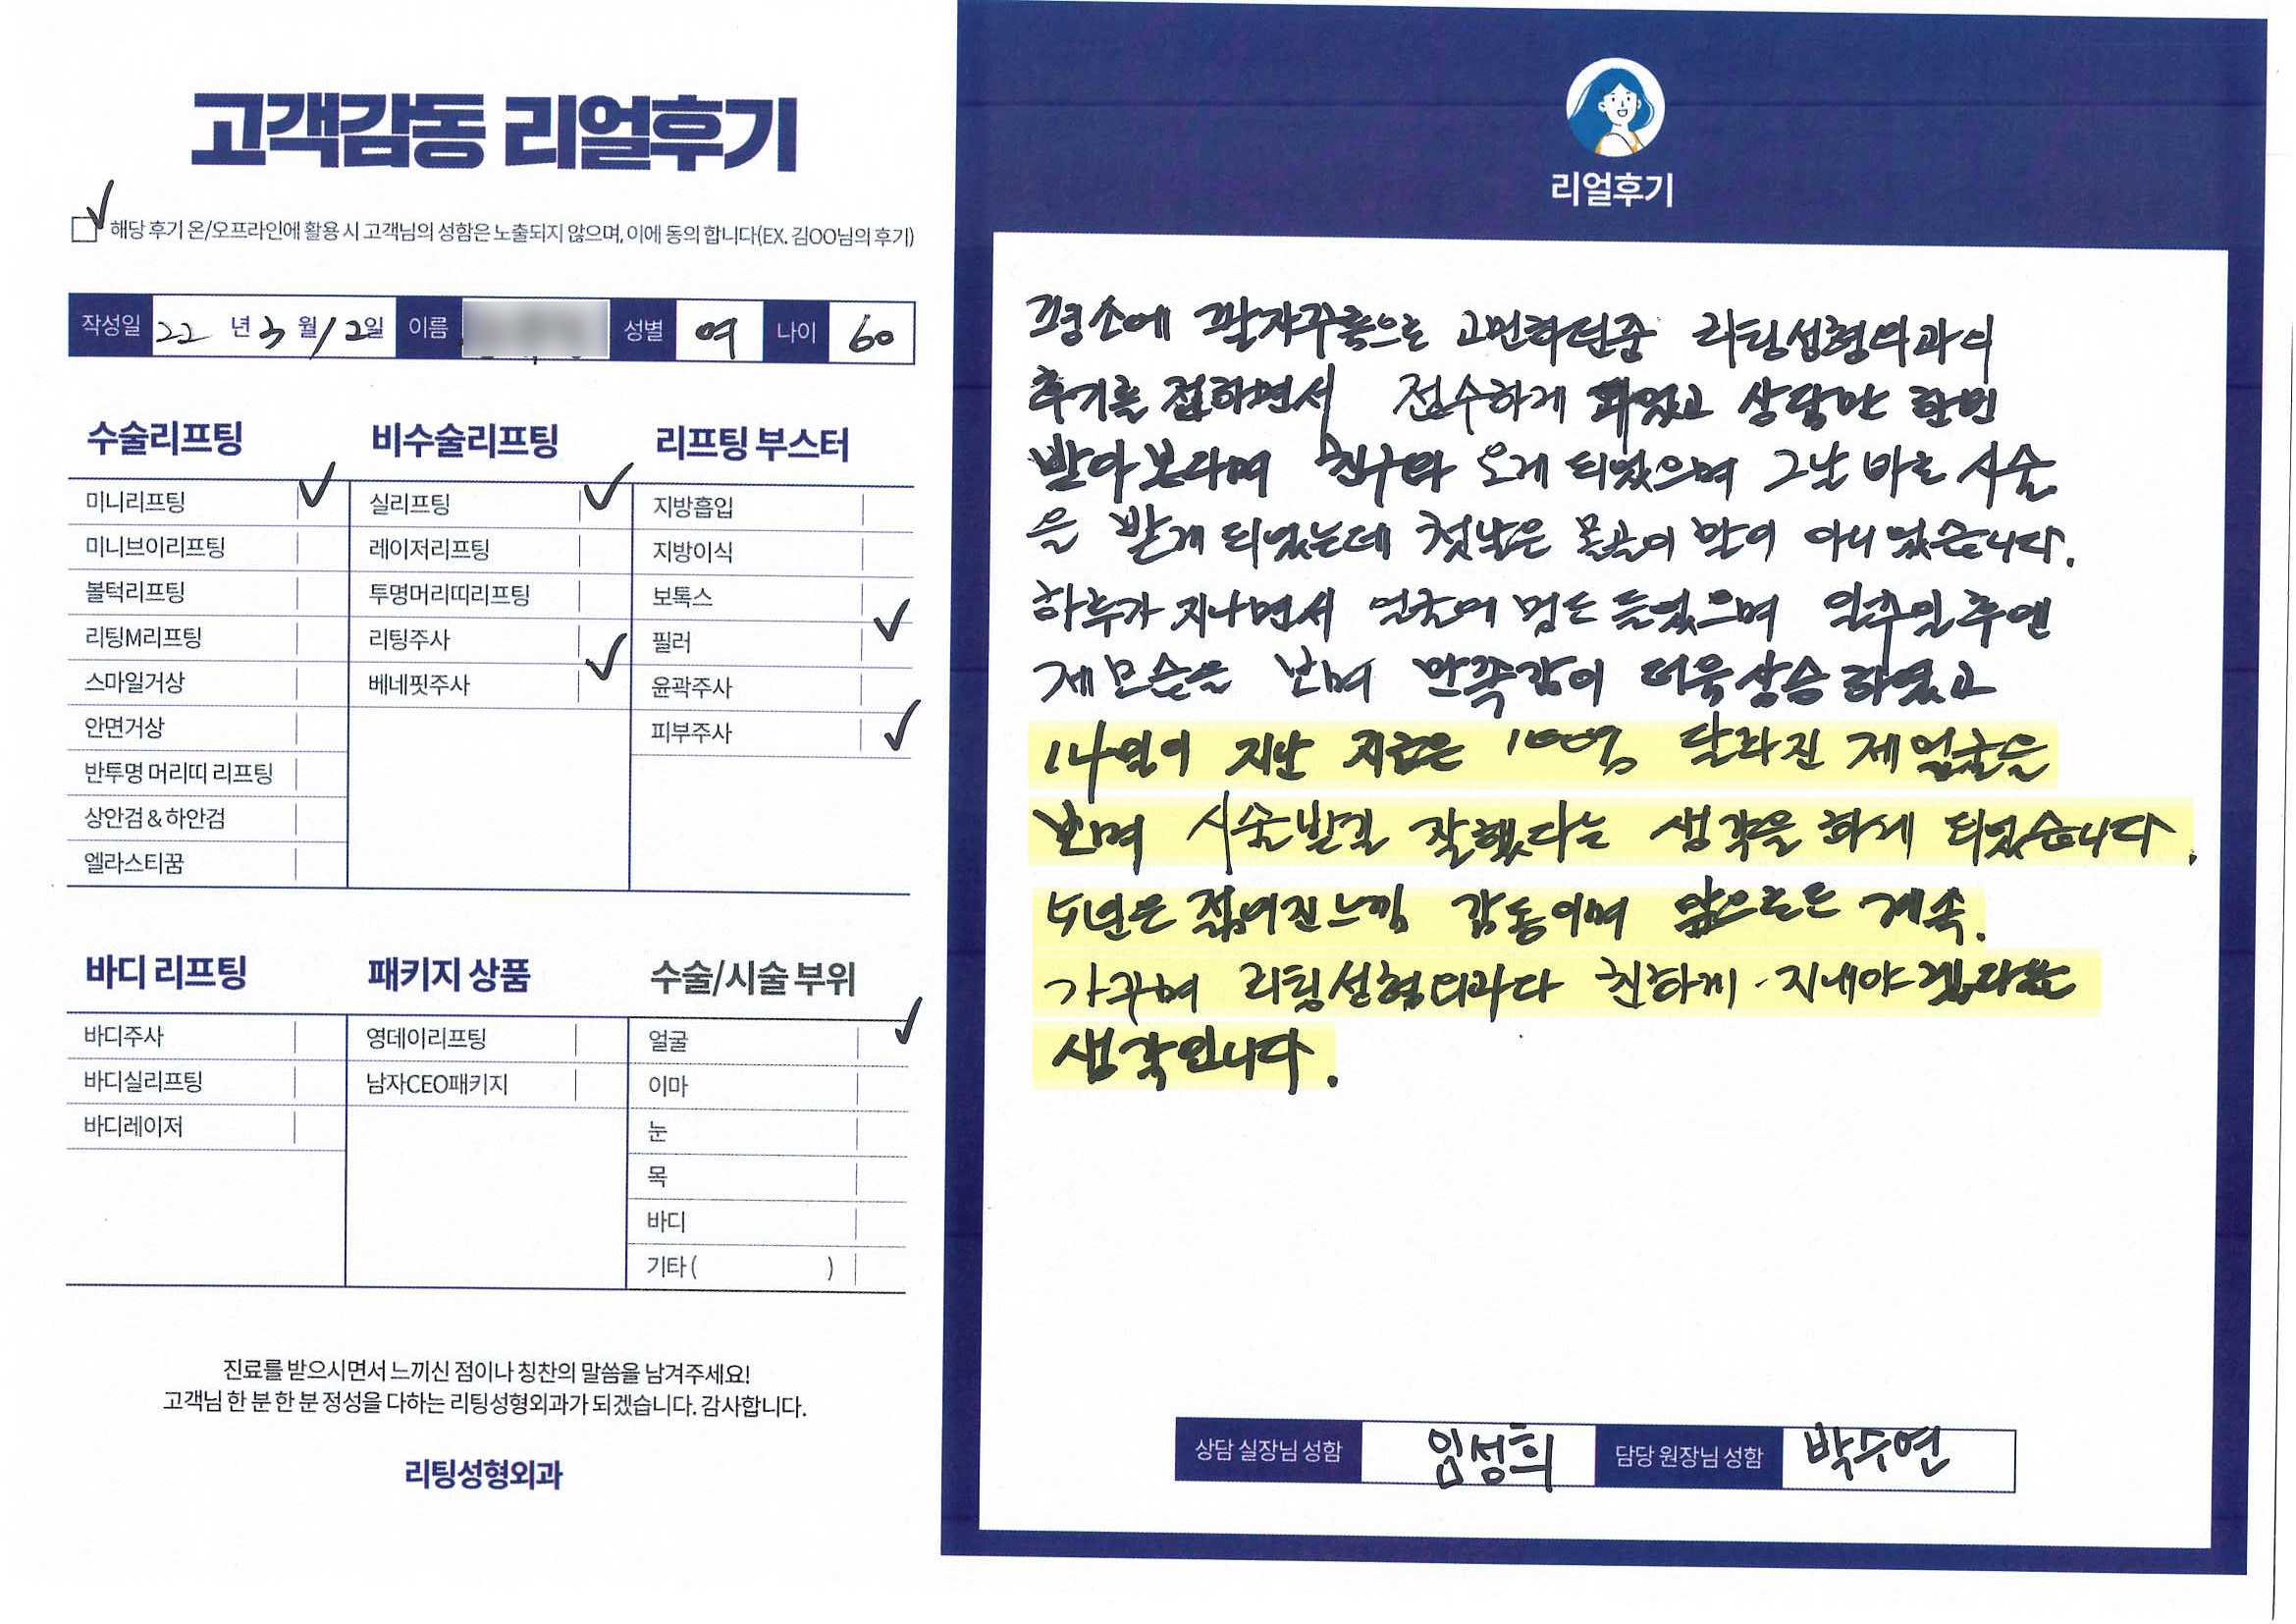 고객감동 리얼후기
해당 후기 온/오프라인에 활용 시 고객님의 성함은 노출되지 않으며, 이에 동의 합니다(EX. 김OO님의 후기)
작성일 22 년 3 월 12일 이름 성별 여 나이 60
수술리프팅
미니리프팅
미니브이리프팅
볼턱리프팅
리팅M리프팅
스마일거상
안면거상
반투명 머리띠 리프팅
상안검 & 하안검
엘라스티꿈
비수술리프팅
실리프팅
레이저리프팅
투명머리띠리프팅
리팅주사
베네핏주사
리프팅 부스터
지방흡입
지방이식
보톡스
필러
윤곽주사
피부주사
바디 리프팅
바디주사
바디실리프팅
바디레이저
패키지 상품
영데이리프팅
남자CEO패키지
수술/시술 부위
얼굴
이마
눈
목
바디
기타 ( )
진료를 받으시면서 느끼신 점이나 칭찬의 말씀을 남겨주세요!
고객님 한 분 한 분 정성을 다하는 리팅성형외과가 되겠습니다. 감사합니다.
리팅성형외과
리얼후기
평소에 팔자주름으로 고민하던중 리팅성형외과의
후기를 접하면서 접수하게 되었고 상담만 한번
받아본다며 친구와 오게 되었으며 그날 바로 시술
을 받게 되었는데 첫날은 몰골이 말이 아니었습니다.
하루가 지나면서 얼굴에 멍도 들었으며 일주일 후엔
제모습을 보며 만족감이 더욱상승 하였고
14일이 지난 지금은 100% 달라진 제 얼굴을
보며 시술받길 잘했다는 생각을 하게 되었습니다.
5년은 젊어진느낌 감동이며 앞으로는 계속.
가꾸며 리팅성형외과와 친하게 지내야 겠다는
생각입니다.
상담 실장님 성함 임성희 담당 원장님 성함 박수연